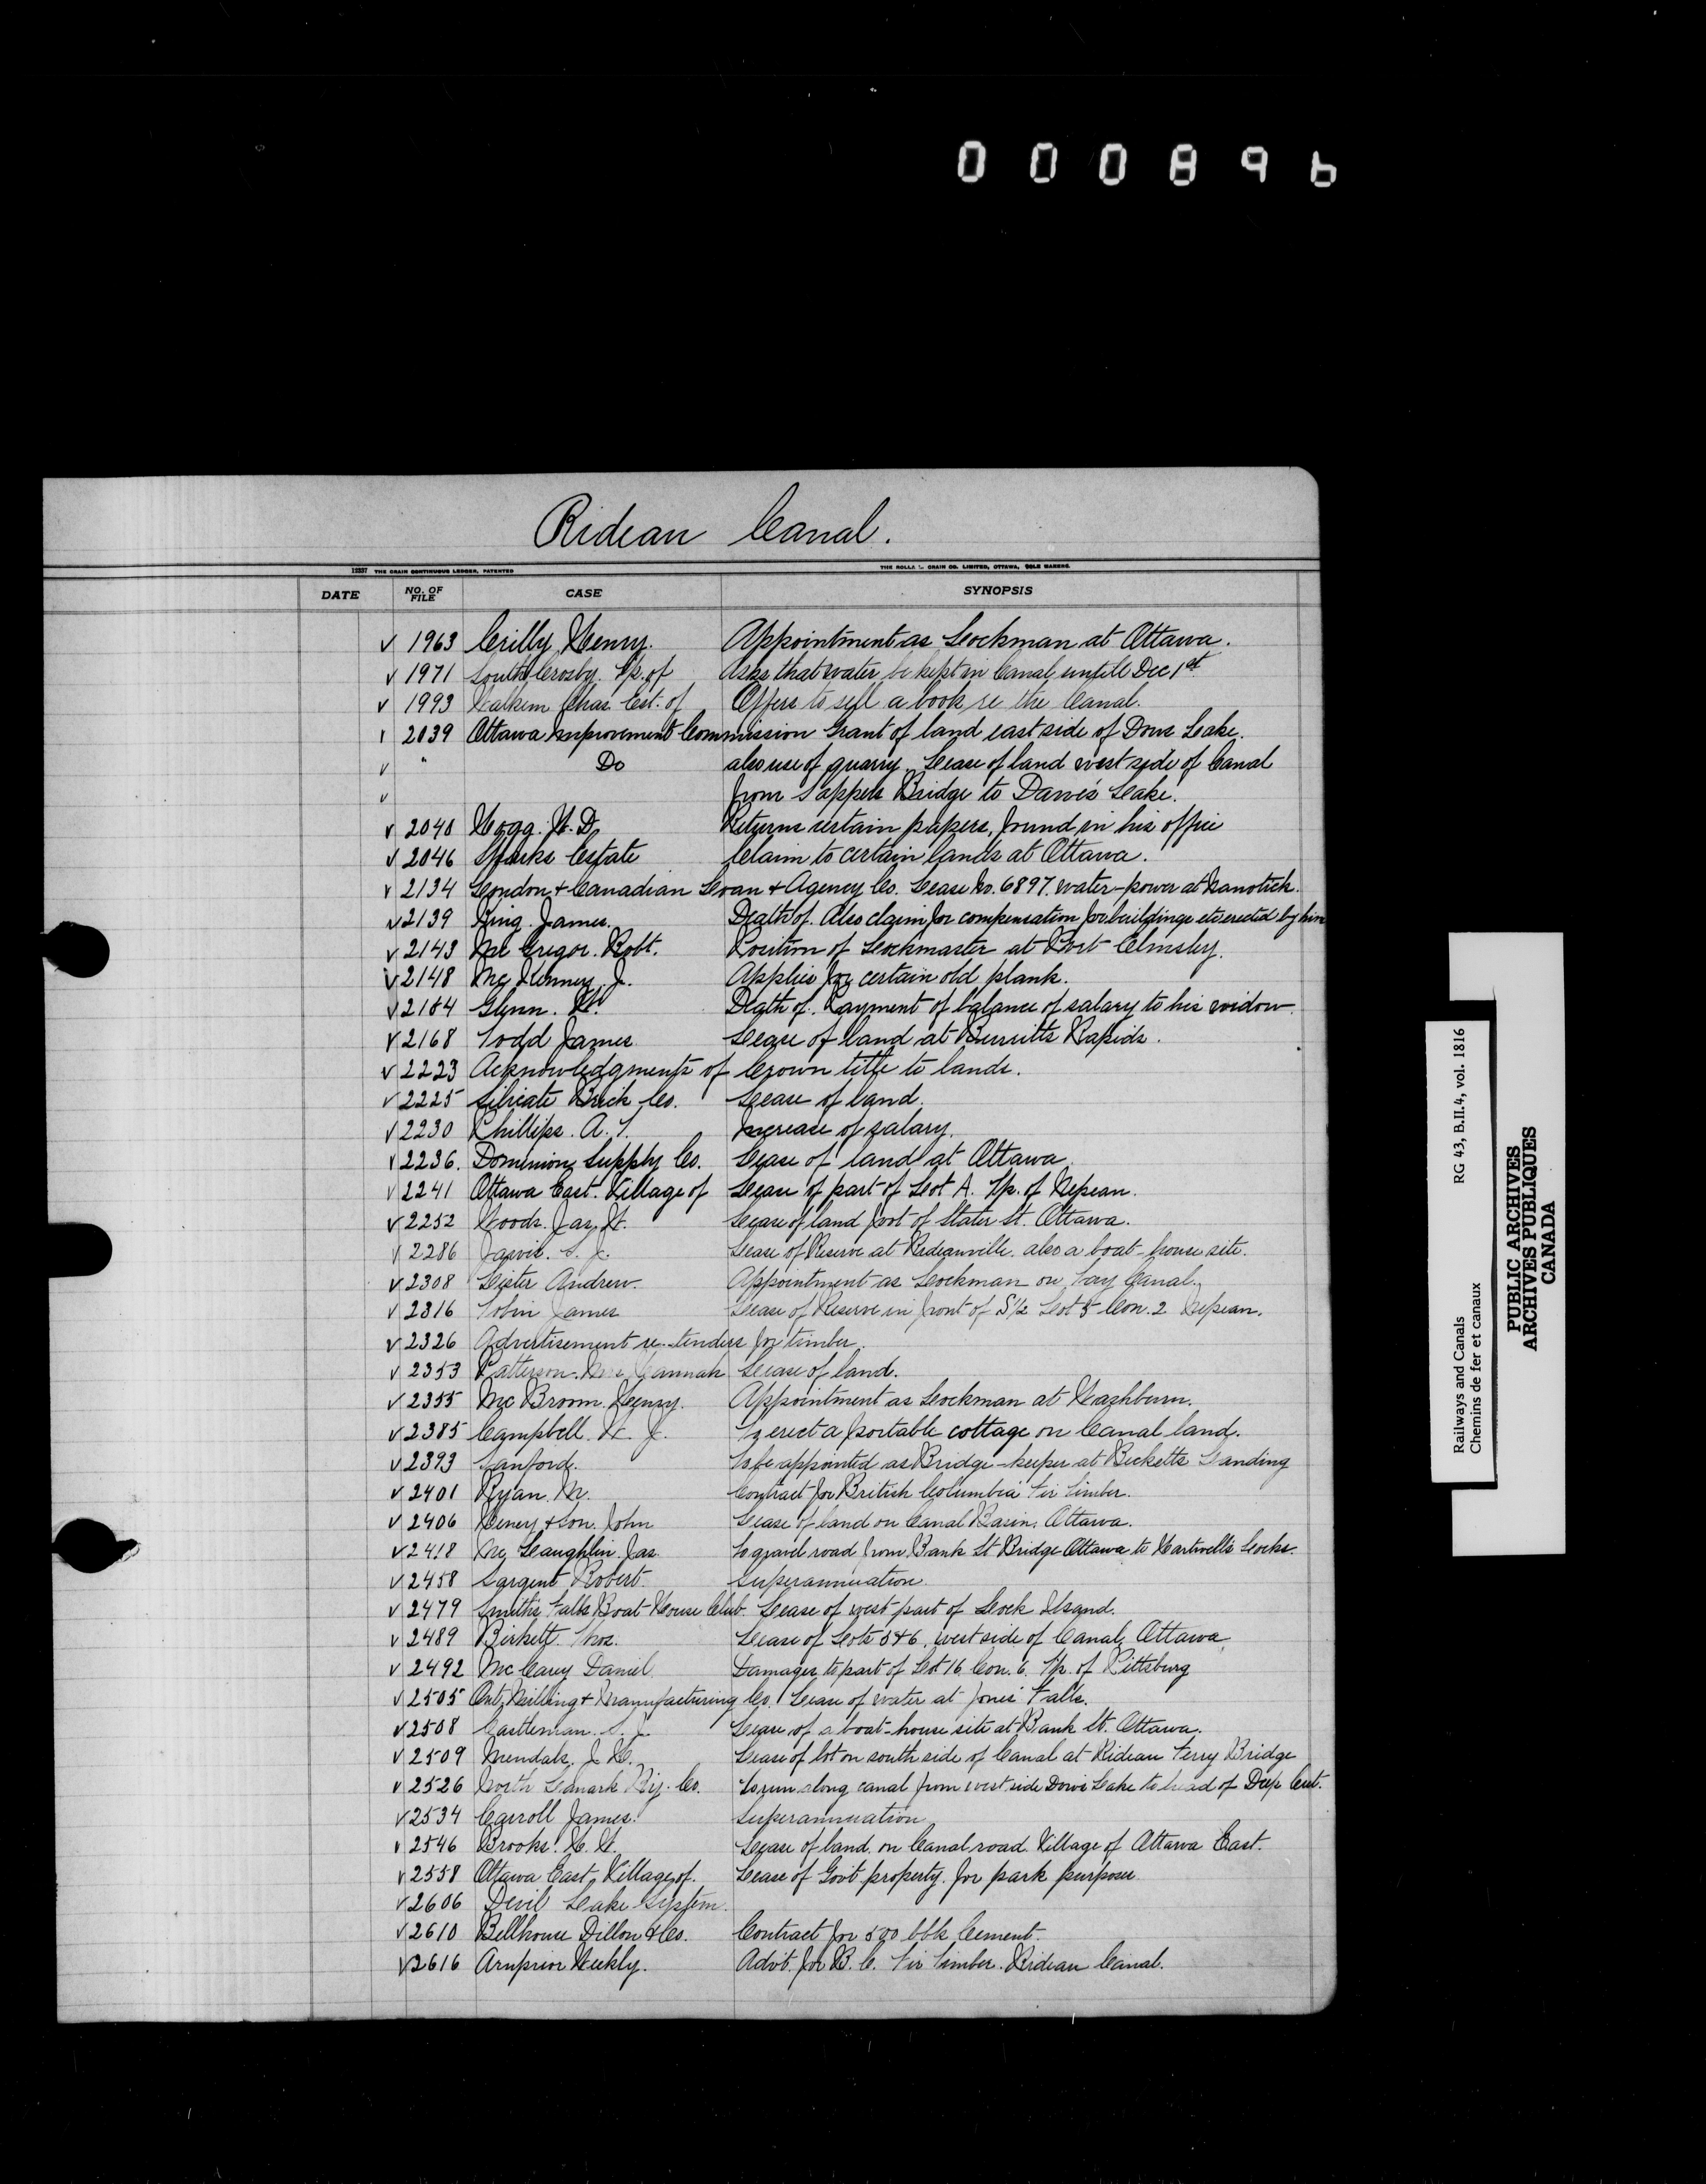 000896
Rideau Canal.
19337 THE CRAIN CONTINUOUS LEDGER, PATENTED THE ROLLA L. CRAIN CO. LIMITED, OTTAWA, SOLE MAKERS.
DATE NO. OF FILE CASE SYNOPSIS
✓ 1963 Crilly, Henry. Appointment as Lockman at Ottawa.
✓ 1971 South Crosby. Tp. of Asks that water be kept in Canal untill Dec 1st
✓ 1993 Walkem Chas. Est. of Offers to sell a book re the Canal.
✓ 2039 Ottawa Improvement Commission Grant of land east side of Dows Lake.
✓ " Do also use of quarry. Lease of land west side of Canal
✓ from Sappers Bridge to Dow's Lake.
✓ 2040 Hogg. W. D. Returns certain papers, found in his office
✓ 2046 Sparks Estate Claim to certain lands at Ottawa.
✓ 2134 London & Canadian Loan & Agency Co. Lease No. 6897. water-power at Manotick.
✓ 2139 King. James. Death of. Also claim for compensation for buildings etc erected by him
✓ 2143 Mc Gregor. Robt. Position of Lockmaster at Port Elmsley.
✓ 2148 Mc Kenney. J. Applies for certain old plank.
✓ 2164 Glenn. W. Death of. Payment of balance of salary to his widow.
✓ 2168 Todd James. Lease of land at Burritts Rapids.
✓ 2223 Acknowledgments of Crown title to lands.
✓ 2225 Silicate Brick Co. Lease of land.
✓ 2230 Phillips. A. T. Increase of salary.
✓ 2236. Dominion Supply Co. Lease of land at Ottawa.
✓ 2241 Ottawa East. Village of Lease of part of Lot A. Tp. of Nepean.
✓ 2252 Woods. Jas. W. Lease of land foot of Slater St. Ottawa.
✓ 2286 Jarvis. S. J. Lease of Reserve at Rideauville. also a boat-house site.
✓ 2308 Lister Andrew. Appointment as Lockman on Tay Canal.
✓ 2316 Tobin James Lease of Reserve in front of S½ Lot 5 Con. 2 Nepean.
✓ 2326 Advertisement re tenders for timber.
✓ 2353 Patterson. Mrs. Hannah Lease of land.
✓ 2355 Mc Broom. Henry. Appointment as Lockman at Washburn.
✓ 2385 Campbell. W. J. To erect a portable cottage on Canal land.
✓ 2393 Sanford. To be appointed as Bridge-keeper at Becketts Landing
✓ 2401 Ryan. M. Contract for British Columbia Fir Timber.
✓ 2406 Heney & Son. John Lease of land on Canal Basin, Ottawa.
✓ 2418 Mc Laughlin. Jas. To gravel road from Bank St Bridge Ottawa to Hartwell's Locks.
✓ 2458 Sargent Robert. Superannuation.
✓ 2479 Smith's Falls Boat House Club. Lease of west part of Lock Island.
✓ 2489 Birkett Thos. Lease of Lots 5 & 6. west side of Canal, Ottawa.
✓ 2492 Mc Carey Daniel. Damages to part of Lot 16 Con. 6. Tp. of Pittsburg
✓ 2505 Ont. Milling & Manufacturing Co. Lease of water at Jones' Falls.
✓ 2508 Castleman. S. J. Lease of a boat-house site at Bank St. Ottawa.
✓ 2509 Mendals, J. H. Lease of lot on south side of Canal at Rideau Ferry Bridge
✓ 2526 North Lanark Ry. Co. To run along canal from west side Dow's Lake to head of Deep Cut.
✓ 2534 Carroll James. Superannuation
✓ 2546 Brooks. H. W. Lease of land on Canal road. Village of Ottawa East.
✓ 2558 Ottawa East. Village of. Lease of Govt property. for park purposes
✓ 2606 Devil Lake System.
✓ 2610 Bellhouse Dillon & Co. Contract for 500 bbls Cement.
✓ 2616 Arnprior Weekly. Advt. for B. C. Fir Timber. Rideau Canal.
Railways and Canals RG 43, B.II.4, vol. 1816
Chemins de fer et canaux
PUBLIC ARCHIVES
ARCHIVES PUBLIQUES
CANADA